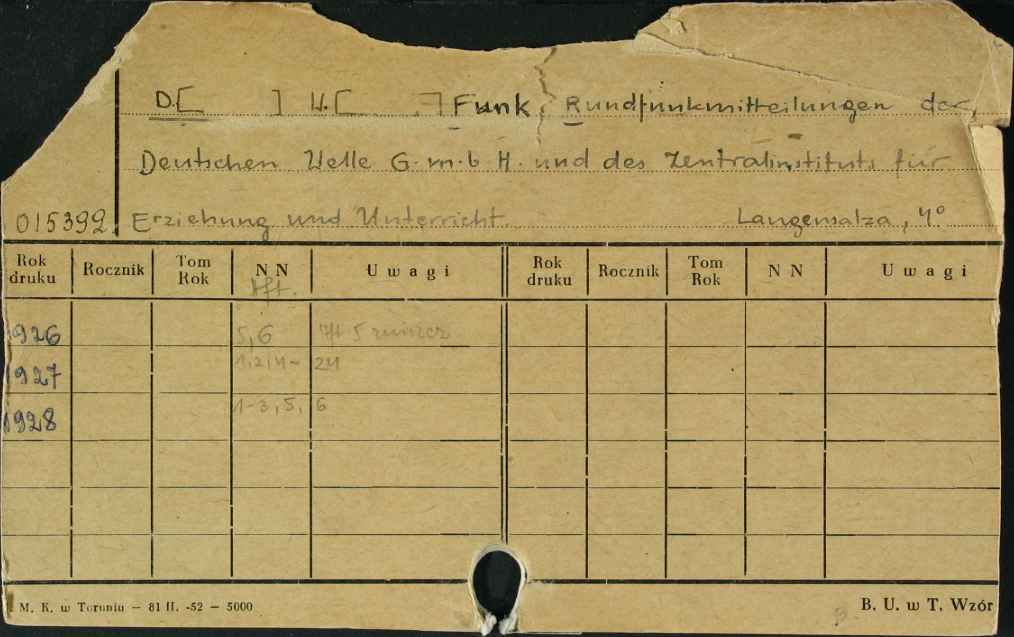 D.[ ] W.[ ] Funk, Rundfunkmitteilungen der
Deutschen Welle G.m.b H. und des Zentralinstituts für
015399. Erziehung und Unterricht. Langensalza, 4°
Rok druku Rocznik Tom Rok N N Uwagi Rok druku Rocznik Tom Rok N N Uwagi
Hft.
1926 5,6 5 numer
1927 1,2,4- 24
1928 1-3, 5, 6
M. K. w Toruniu — 81 II. -52 — 5000 B. U. w T. Wzór